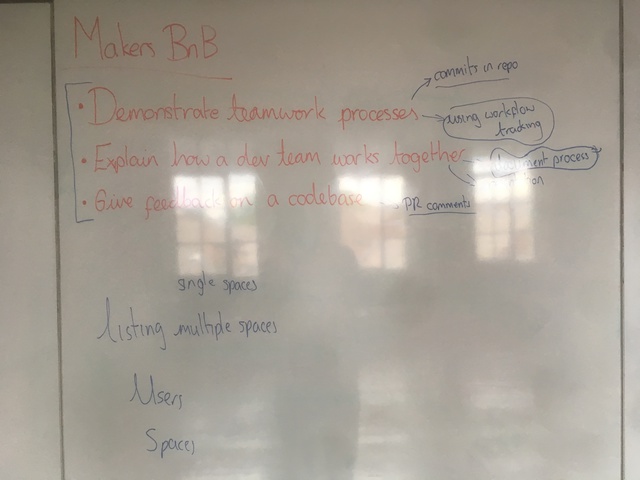 Makers BnB
• Demonstrate teamwork processes
commits in repo
using workflow
tracking
• Explain how a dev team works together
process
• Give feedback on a codebase
PR comments
single spaces
Listing multiple spaces
Users
Spaces